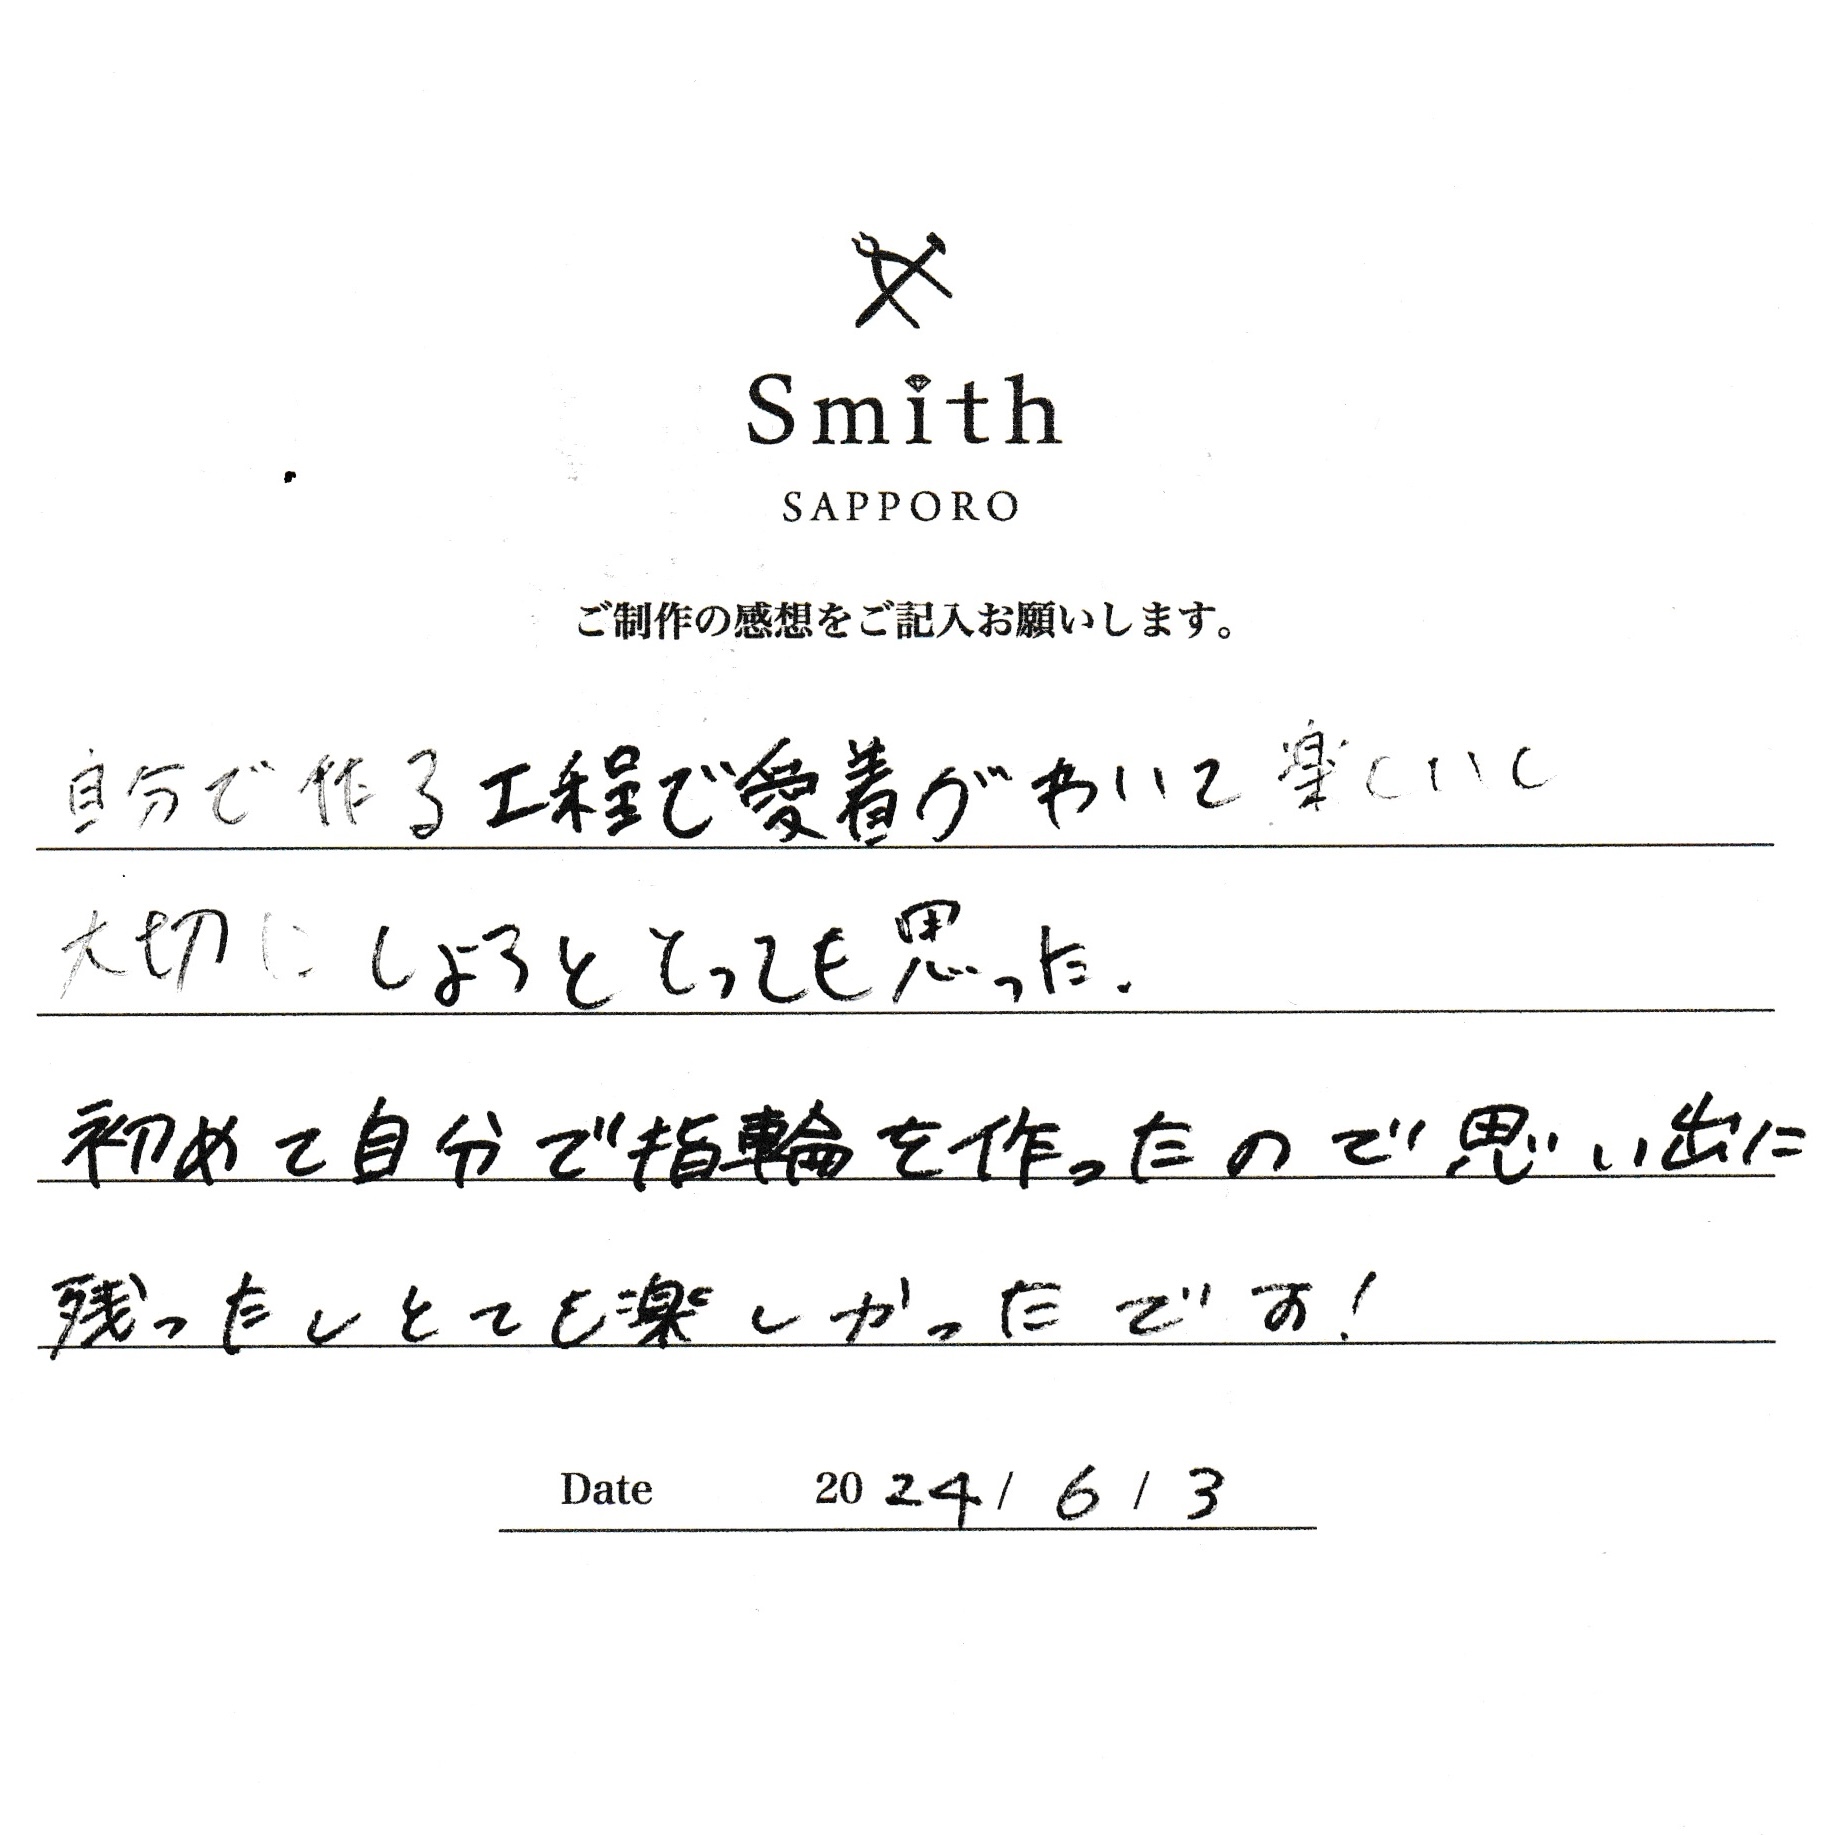 Smith
SAPPORO
ご制作の感想をご記入お願いします。
自分で作る工程で愛着がわいて楽しいし
大切にしようととっても思った.
初めて自分で指輪を作ったので思い出に
残ったしとても楽しかったです!
Date 2024/6/3